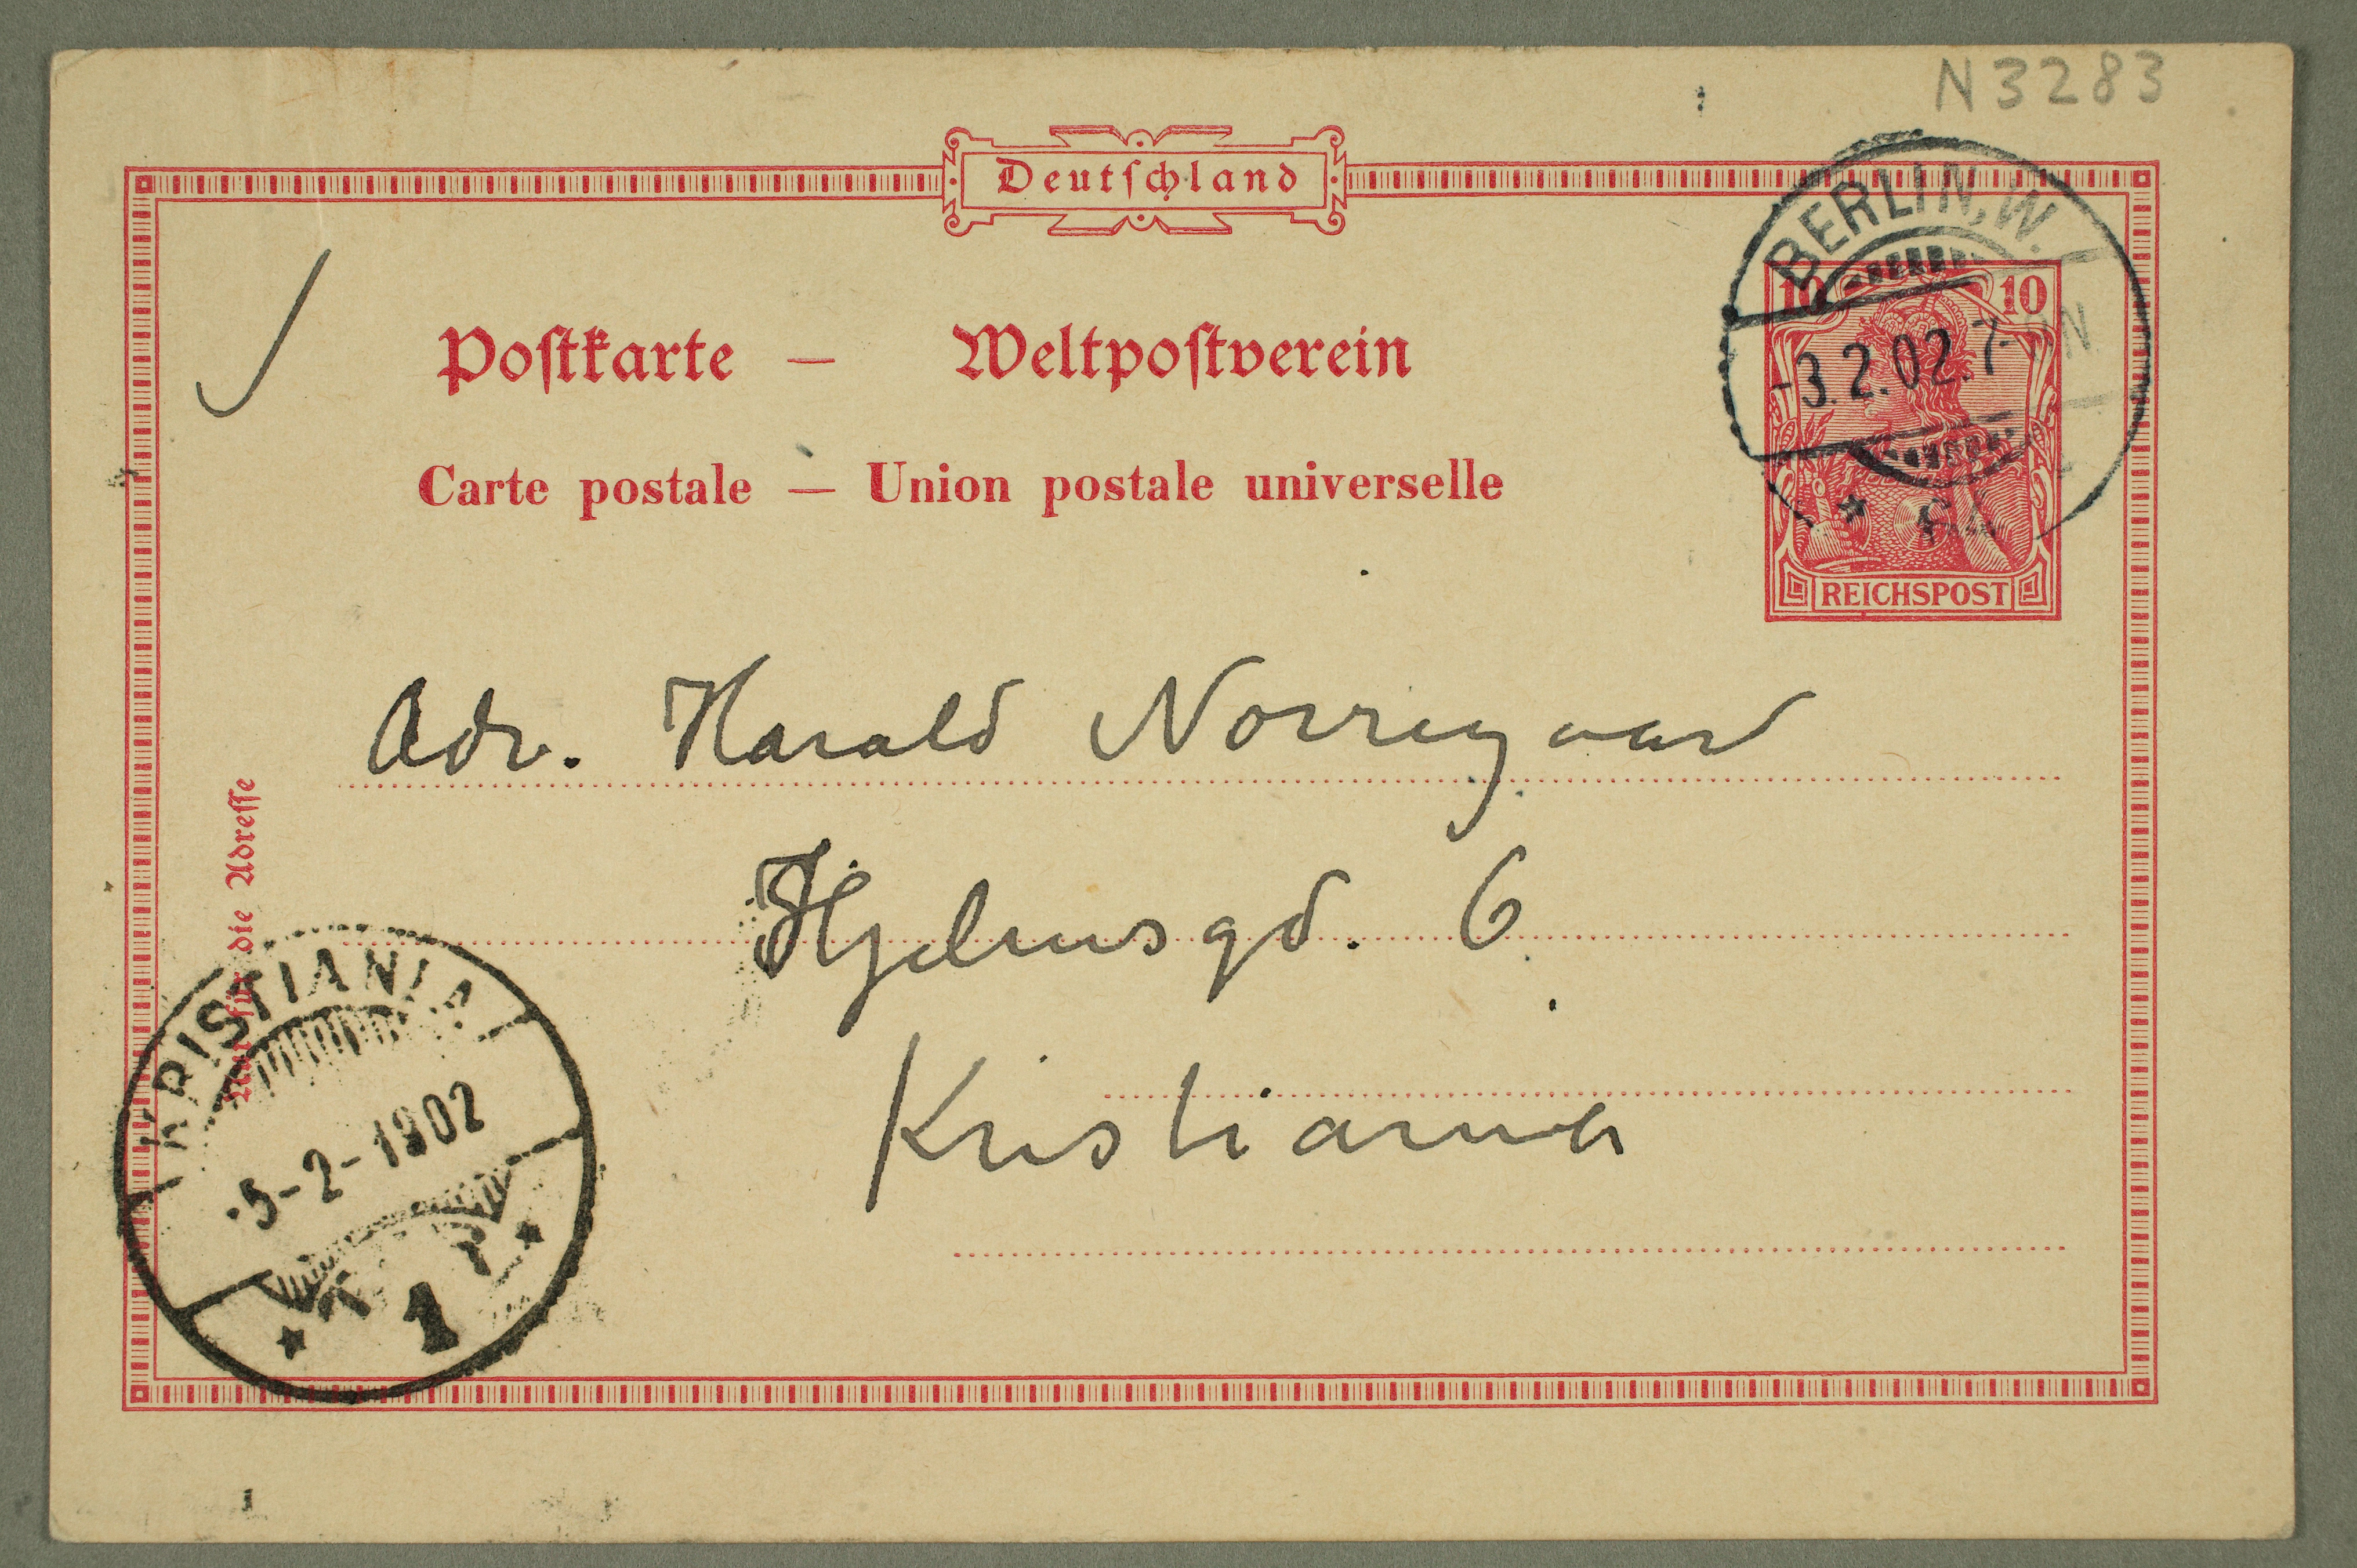 N3283
Deutschland
BERLIN, W.
10 10
-3.2.02.7-
REICHSPOST
Postkarte — Weltpostverein
Carte postale — Union postale universelle
Adv. Harald Norregaard
Hjelmsgd. 6
Kristiania
Nur für die Adresse
KRISTIANIA
5-2-1902
1